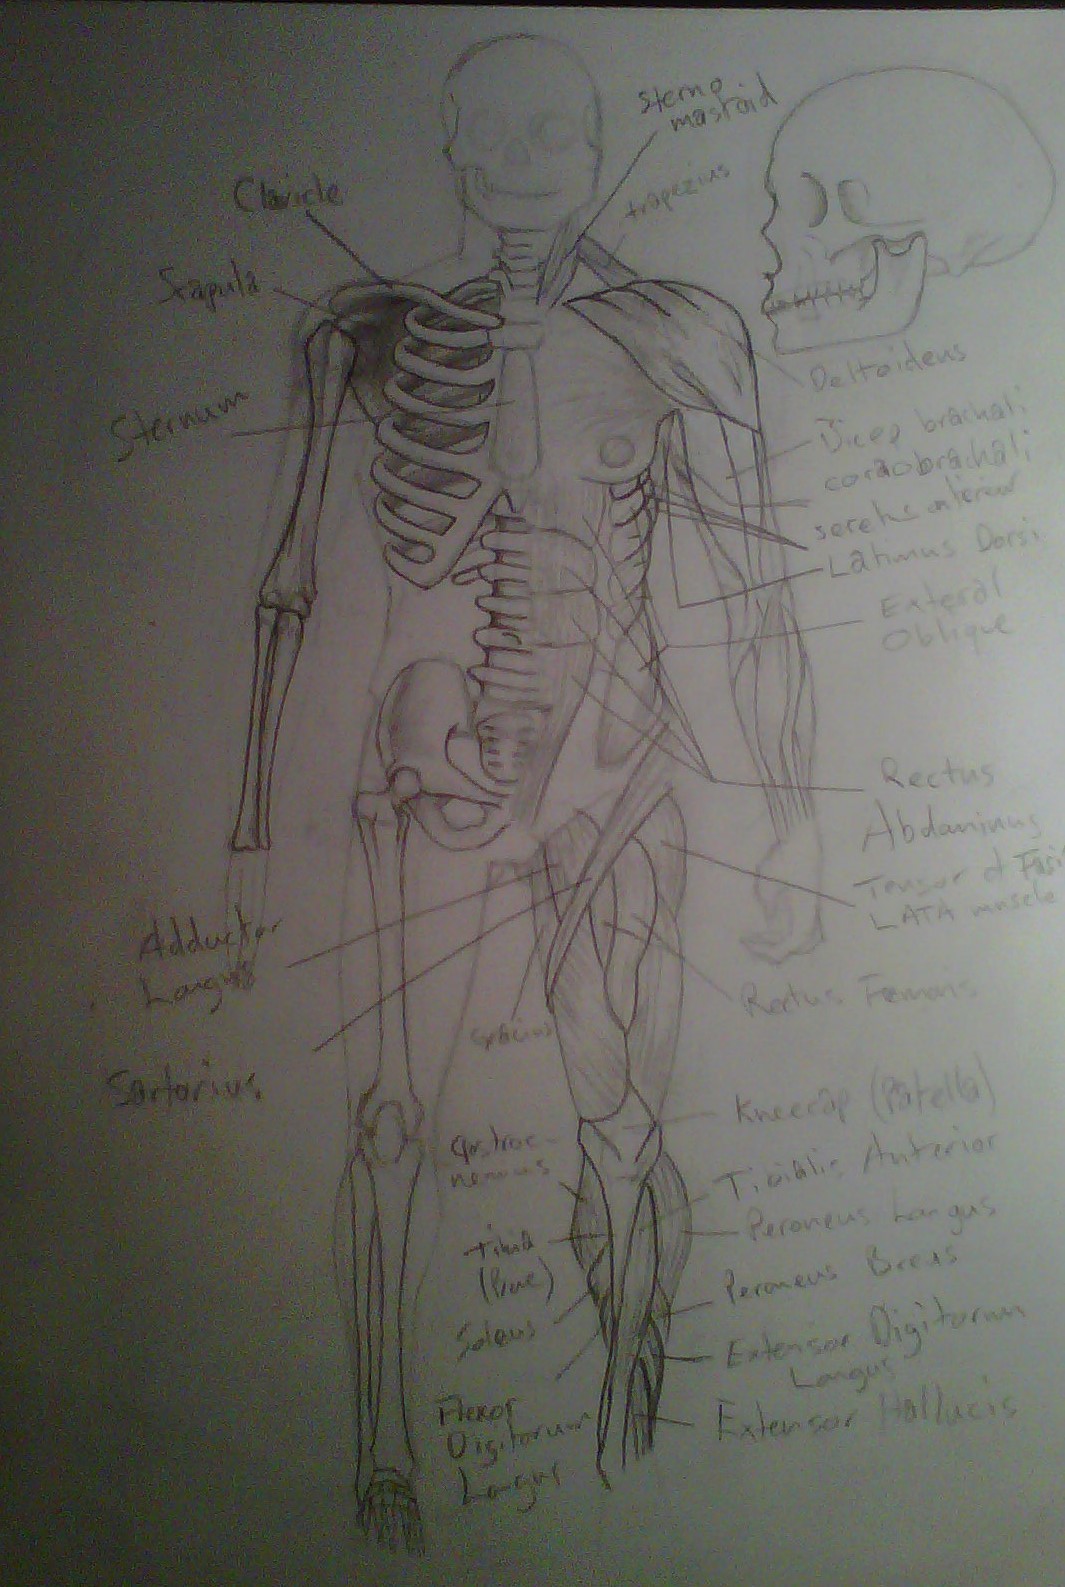 Sterno
mastoid
trapezius
Clavicle
Scapula
Sternum
Deltoideus
Bicep brachali
coracobrachali
seretus anterior
Latimus Dorsi
Exteral
Oblique
Rectus
Abdaminus
Tensor of Fasi
LATA muscle
Adductor
Longus
Rectus Femoris
Sartorius
Kneecap (Patella)
Gastroc-
nemius
Tibialis Anterior
Peroneus Longus
Tibia
(Bone)
Peroneus Breus
Soleus
Extensor Digitorum
Longus
Flexor
Digitorum
Longus
Extensor Hallucis